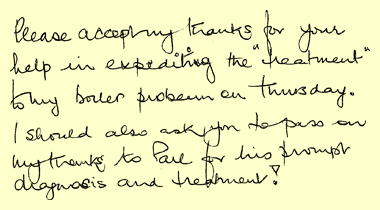 Please accept my thanks for your
help in expediting the "treatment"
to my boiler problem on Thursday.
I should also ask you to pass on
my thanks to Paul for his prompt
diagnosis and treatment!